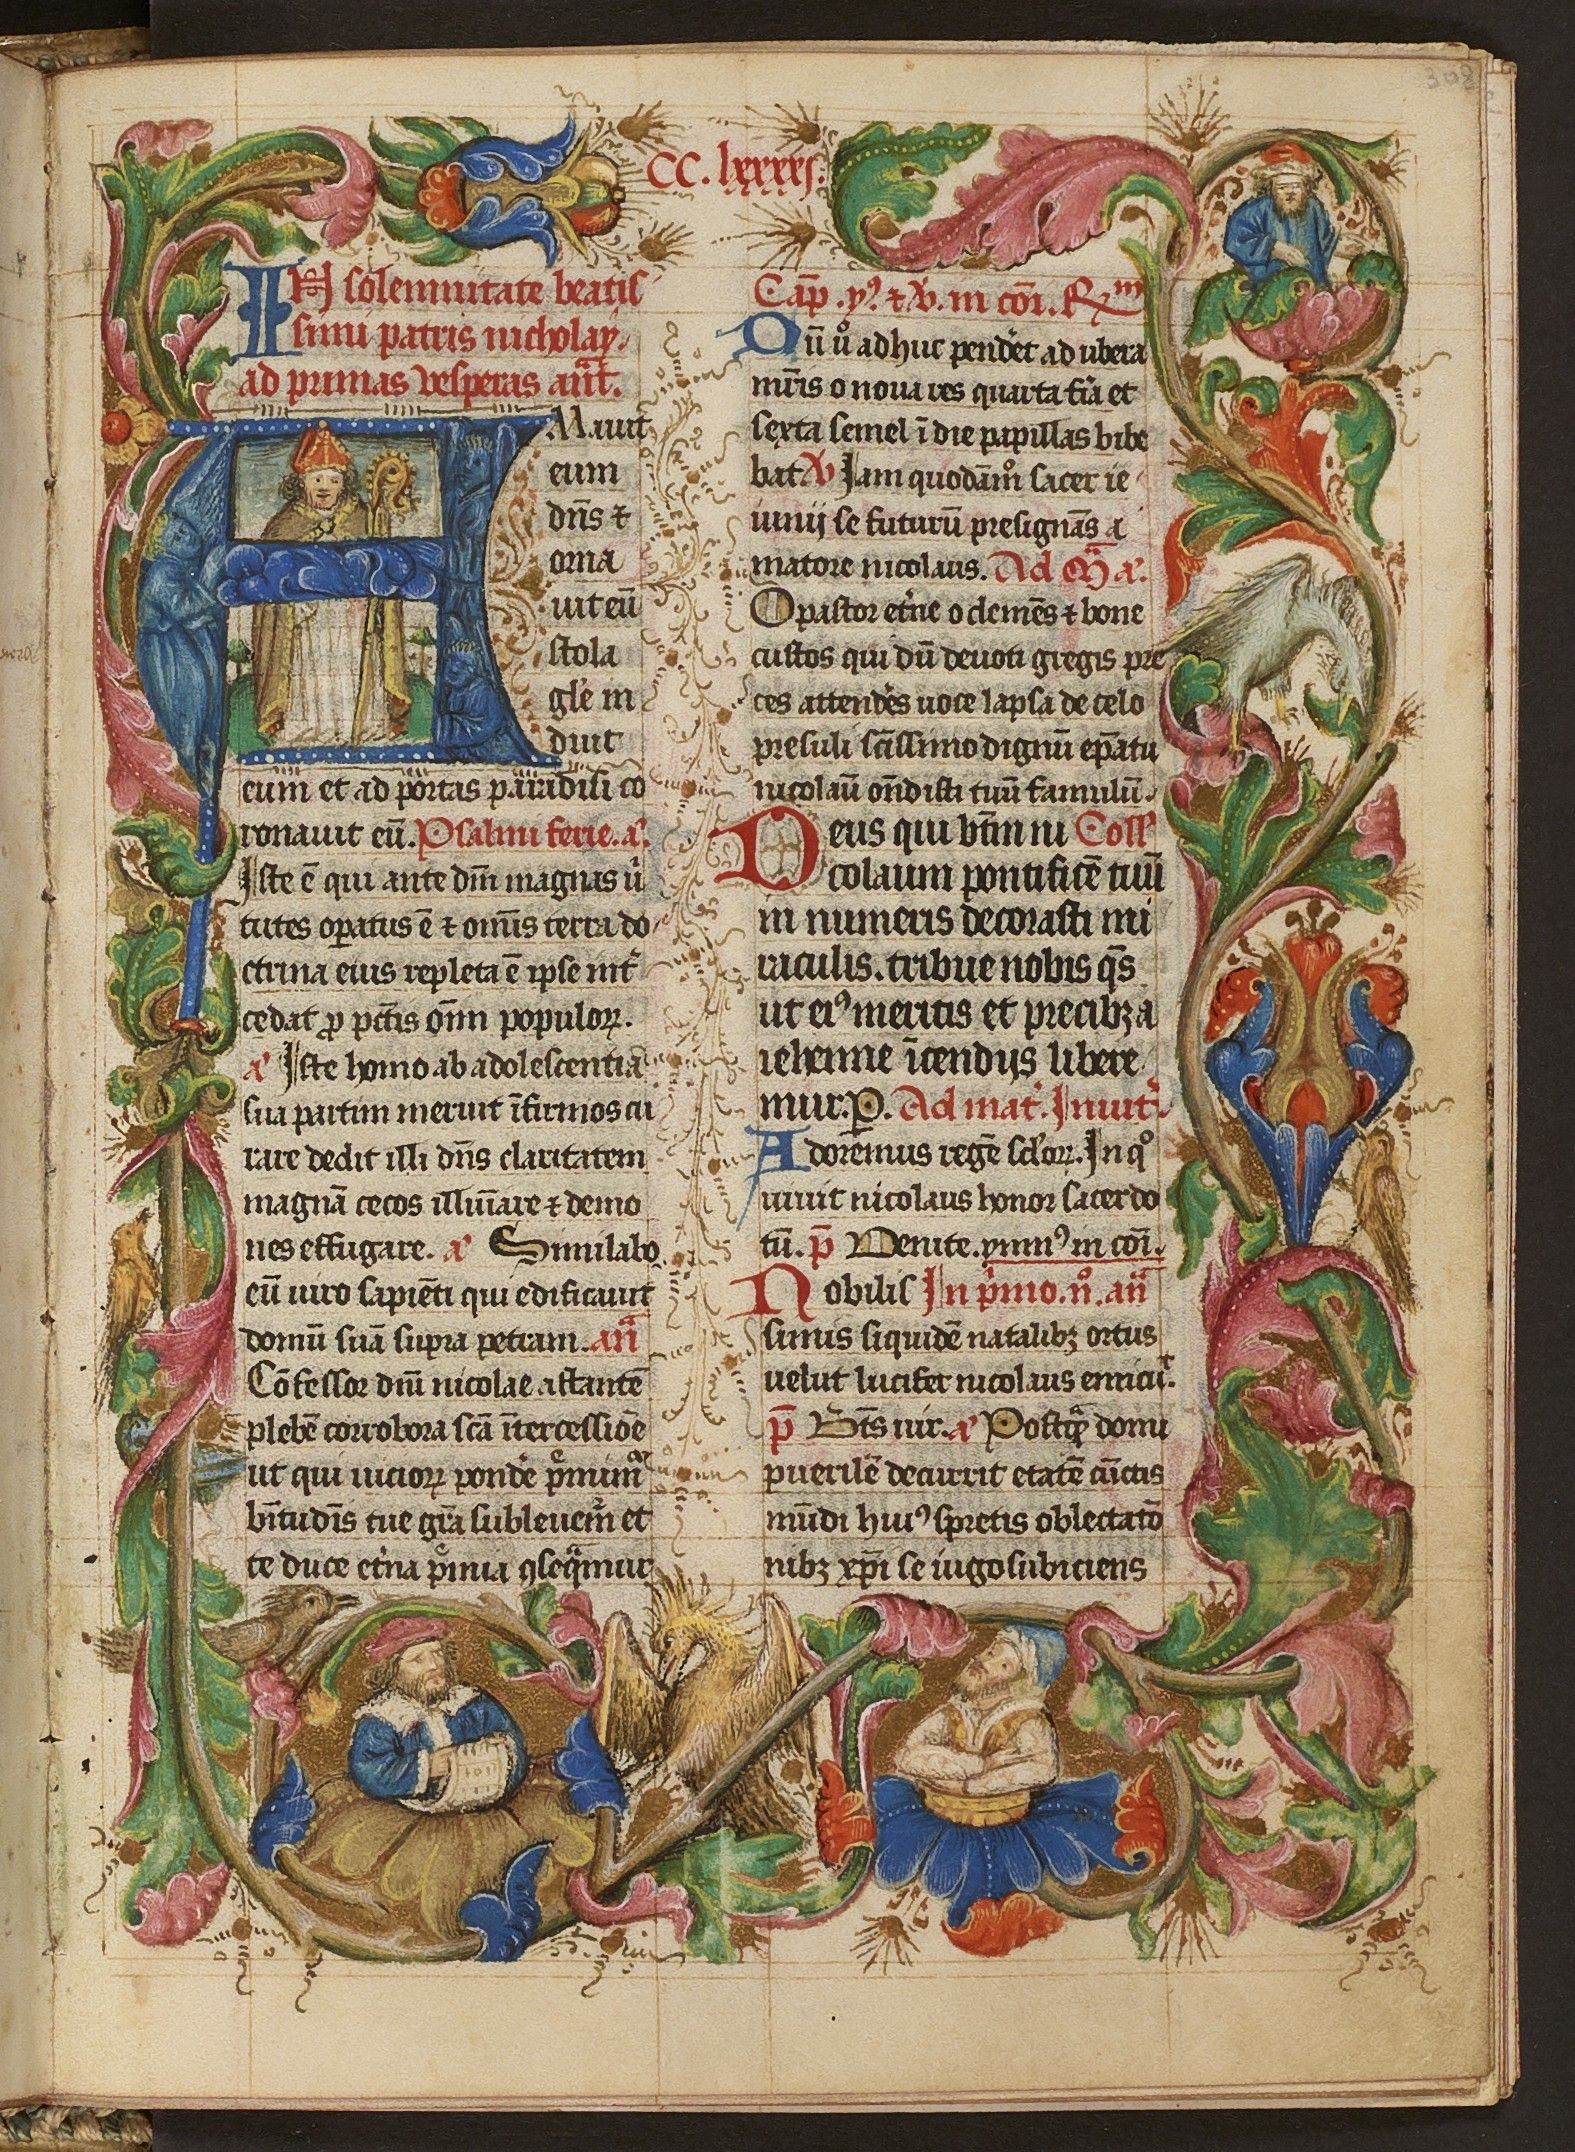 308
CC. lxxxxj.
IN solemnitate beatis
simi patris nicholay.
ad primas vesperas an̄t.
AMauit
eum
dn̄s ⁊
orna
uit eū
stola
gl'e in
duit
eum et ad portas paradisi co
ronauit eū. Psalmi ferie. a͛.
Iste ē qui ante dm̄ magnas ū
tutes oꝑatus ē ⁊ om̄is terra do
ctrina eius repleta ē ipse int͛
cedat ꝓ pct̄is om̄i populoꝝ.
a͛ Iste homo ab adolescentia
sua partim meruit īfirmos cu
rare dedit illi dn̄s claritatem
magnā cecos illuīare ⁊ demo
nes effugare. a͛ Similabo
eū uiro sapiēti qui edificauit
domū suā supra petram. an̄
Cōfessor dn̄i nicolae astantē
plebē corrobora sc̄a ītercessiōe
ut qui uicioꝝ ponde p̄mim͛
bn̄tudīs tue gr̄a subleuem͛ et
te duce et͛na p̄mia ꝯseq̄mur
Cap̄. y͛. ⁊ V̸. in cōi. R̸m
Dū u͛o adhuc pend'et ad ubera
mr̄is o noua res quarta fīa et
sexta semel ī die papillas bibe
bat V̸ Iam quodām͛o sacer ie
iunij se futurū presignās a
matore nicolaus. Ad M̄ a͛.
O pastor et͛ne o clemēs ⁊ bone
custos qui dū deuoti gregis pre
ces attend'es uoce lapsa de celo
presuli sc̄issimo dignū ep̄atu
nicolaū on̄disti tuū famulū.
Deus qui bt̄m ni Coll͛
colaum pontificē tuū
in numeris decorasti mi
raculis. tribue nobis q̄s
ut ei⁹ meritis et precibꝫ a
iehenne īcendijs libere
mur. P. Ad mat͛. Inuit͛.
Adoremus regē sc̄toꝝ. In q͛o
uiuit nicolaus honor sacerdo
tū. p̄ Venite. ymn⁹ in cōi.
Nobilis In p͛mo. n͛o. an̄
simis siquidē natalibꝫ ortus
uelut lucifer nicolaus emicuͭ.
p̄ Bt̄s uir. a͛ Postq̄ domi
puerilē decurrit etatē cūctis
mūdi hui⁹ spretis oblectatō
nibꝫ xp̄i se iugo subiciens